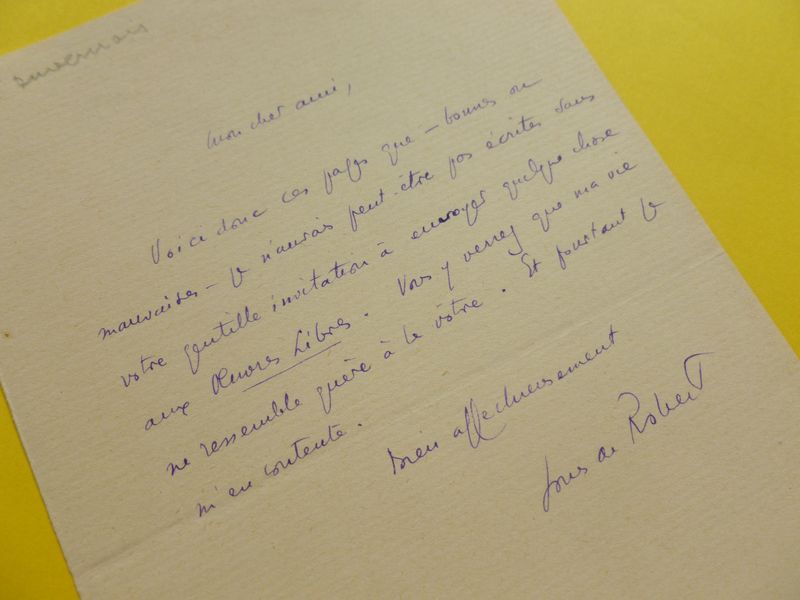 Duvernois
Mon cher ami,
Voici donc ces pages que – bonnes ou
mauvaises – je n'aurais peut-être pas écrites sans
votre gentille invitation à envoyer quelque chose
aux Œuvres Libres. Vous y verrez que ma vie
ne ressemble guère à la vôtre. Et pourtant je
m'en contente.
Bien affectueusement
Louis de Robert